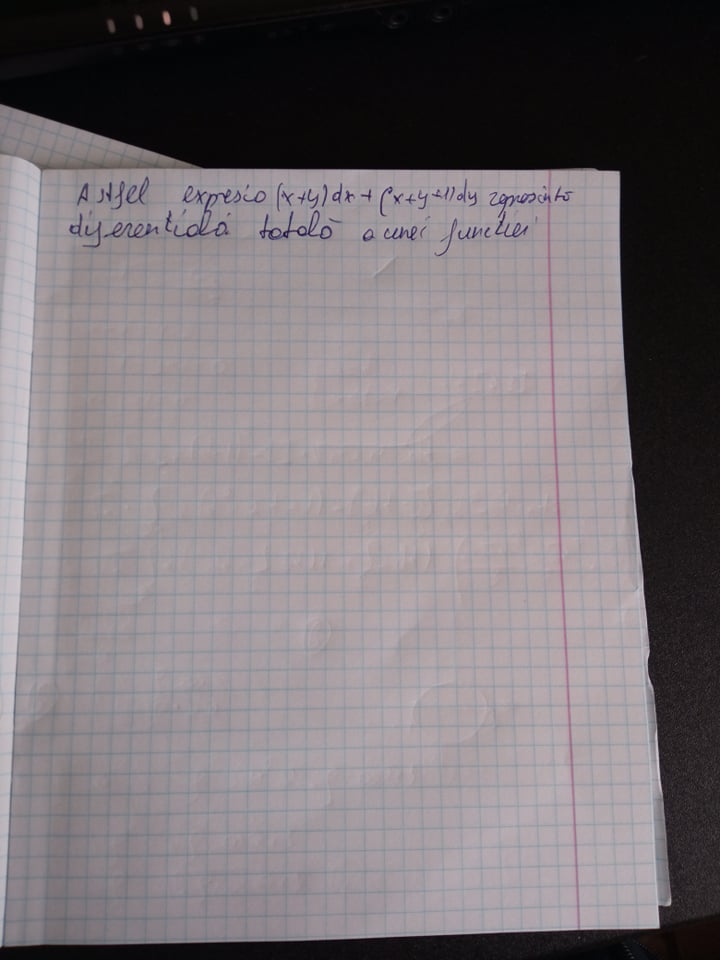 Astfel expresia (x+y)dx + (x+y+1)dy reprezintă
diferențială totală a unei funcției